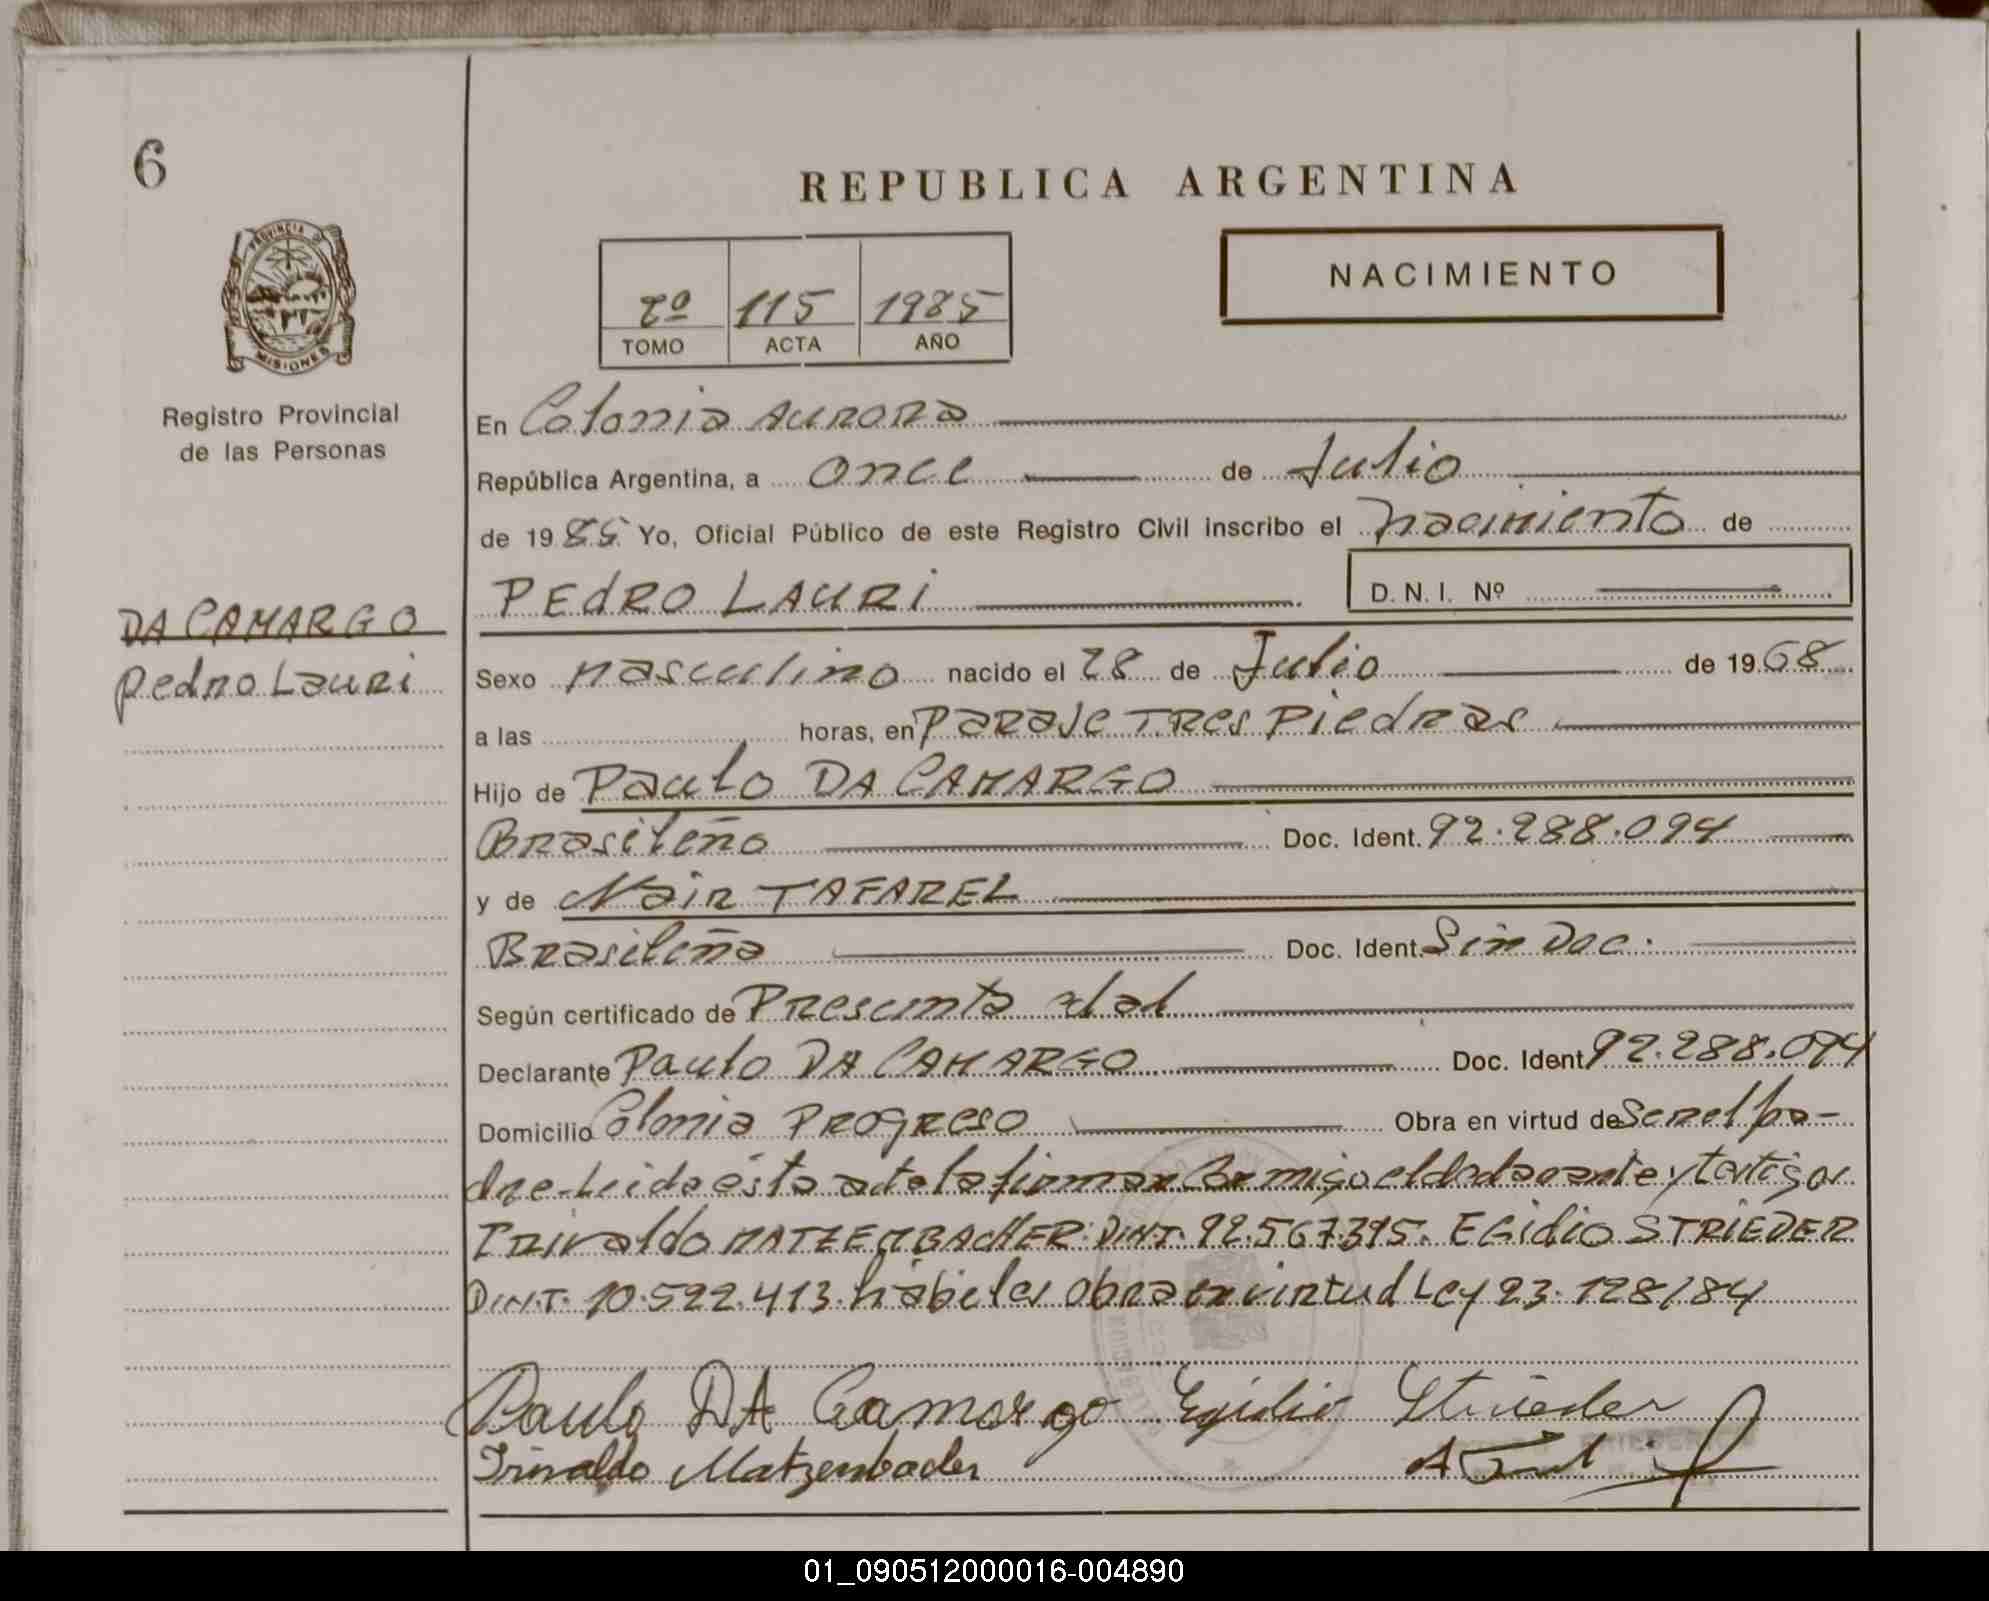 6
REPUBLICA ARGENTINA
NACIMIENTO
2º 115 1985
TOMO ACTA AÑO
PROVINCIA DE
MISIONES
Registro Provincial
de las Personas
En Colonia Aurora
República Argentina, a once de Julio
de 1985 Yo, Oficial Público de este Registro Civil inscribo el nacimiento de
PEdRO LAURi D.N.I. Nº
DA CAMARGO
Pedro Lauri
Sexo masculino nacido el 28 de Julio de 1968
a las horas, en Paraje Tres Piedras
Hijo de Paulo DA CAMARGO
Brasileño Doc. Ident. 92.288.094
y de Nair TAFAREL
Brasileña Doc. Ident. Sin Doc.
Según certificado de Presunta edad
Declarante Paulo DA CAMARGO Doc. Ident 92.288.094
Domicilio Colonia Progreso Obra en virtud de Ser el pa-
dre-Leida ésta acta la firman Conmigo el declarante y testigos
Trivaldo MATZEMBACHER DNI. 92.567.395. EGidio STRIEDER
D.N.I. 10.522.413. hábiles obra en virtud Ley 23.128/84
Paulo DA Camargo Egidio Strieder
Trivaldo Matzenbacher
01_090512000016-004890